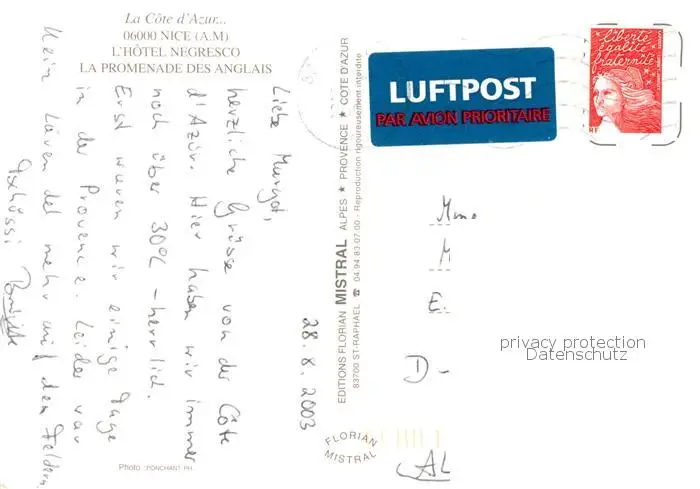 La Côte d'Azur...
06000 NICE (A.M)
L'HÔTEL NEGRESCO
LA PROMENADE DES ANGLAIS
28.8.2003
Liebe Margot,
herzliche Grüsse von der Côte
d'Azur. Hier haben wir immer
noch über 30°C - herrlich.
Erst waren wir einige Tage
in der Provence. Leider war
kein Lavendel mehr auf den Feldern.
Tschüssi Brigitte
Photo : PONCHANT PH.
EDITIONS FLORIAN MISTRAL ALPES ★ PROVENCE ★ COTE D'AZUR
83700 ST-RAPHAEL ☎ 04.94.83.07.00 - Reproduction rigoureusement interdite
FLORIAN
MISTRAL
LUFTPOST
PAR AVION PRIORITAIRE
liberté
égalité
fraternité
RF
Mme
M
E.
D-
AL
privacy protection
Datenschutz